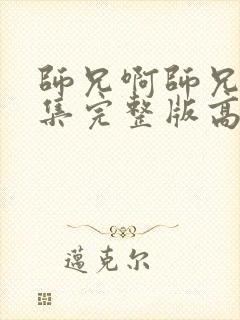 師兄啊師兄
集完整版高
邁克尔